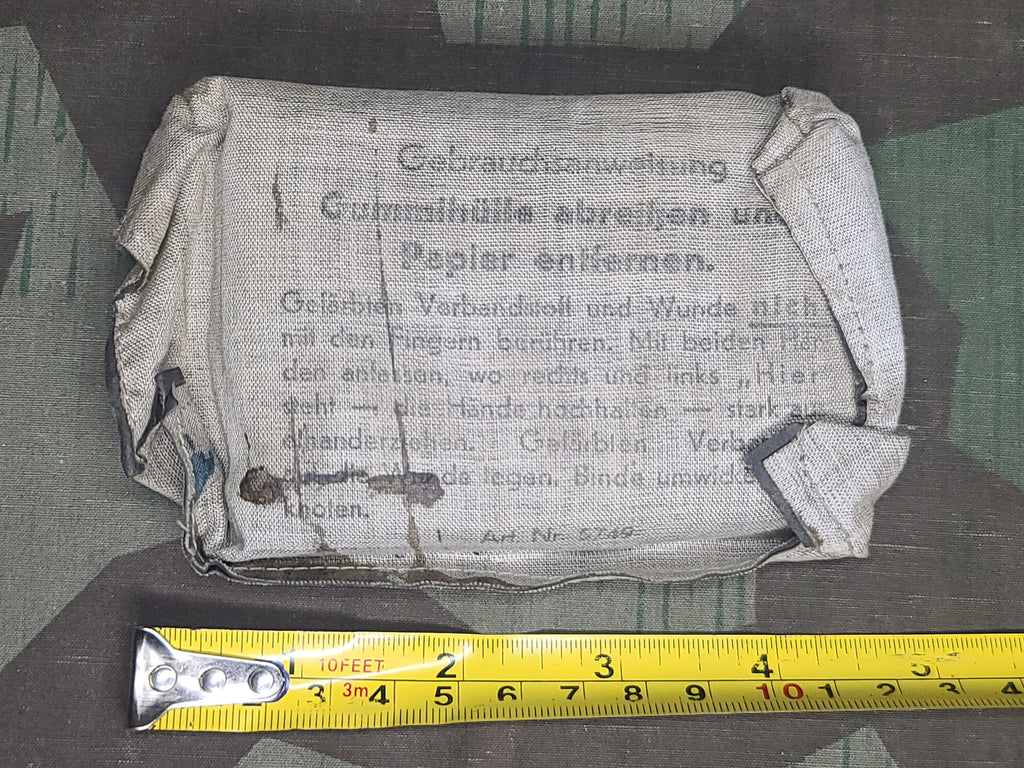 Gebrauchsanweisung
Gummihülle abreißen un
Papier entfernen.
Gefärbten Verbandstoff und Wunde nich
mit den Fingern berühren. Mit beiden Hän
den anfassen, wo rechts und links „Hier
steht — die Hände hochhalten — stark au
einanderziehen." Gefärbten Verba
auf die Wunde legen. Binde umwicke
knoten.
Art. Nr. 5749
1 10FEET 2 3 4 5
3 3m 4 5 6 7 8 9 10 1 2 3 4